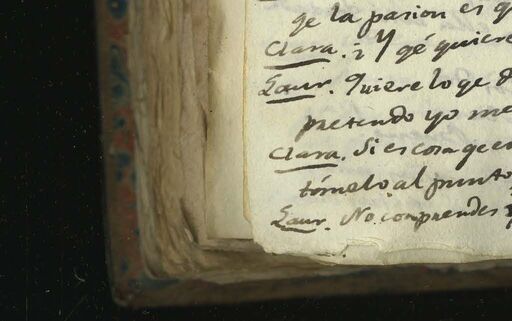 ge la pasion es q
Clara. ¿Y qé quiere
Laur. Quiere lo qe d
pretendo yo me
Clara. Si es cosa qe en
tómelo al punto
Laur. No comprendes